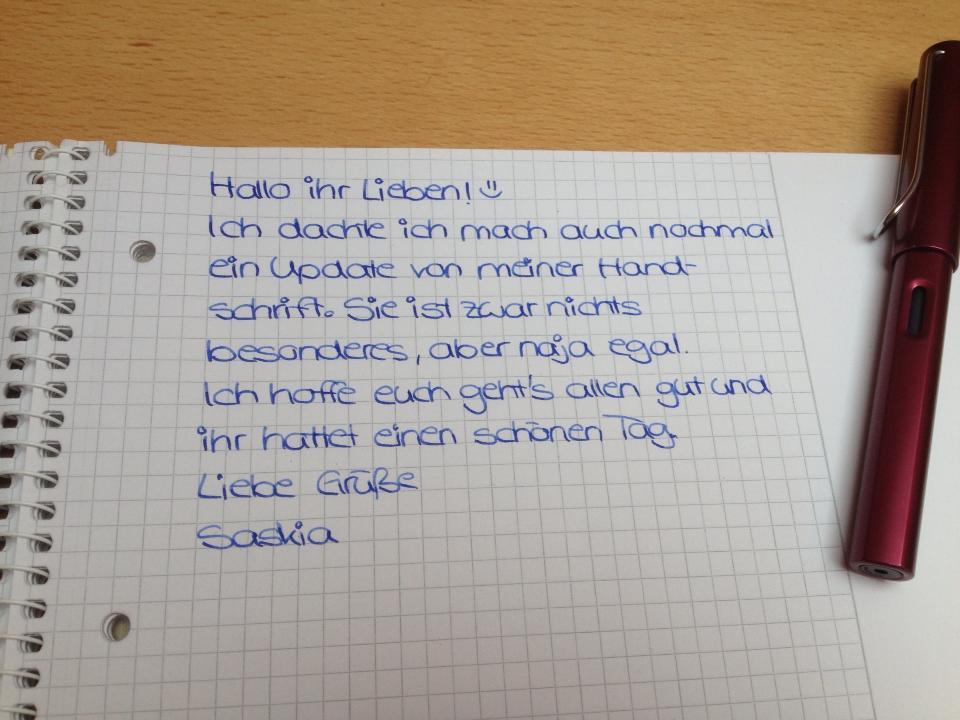 Hallo ihr Lieben! :)
Ich dachte ich mach auch nochmal
ein Update von meiner Hand-
schrift. Sie ist zwar nichts
besonderes, aber naja egal.
Ich hoffe euch geht's allen gut und
ihr hattet einen schönen Tag.
Liebe Grüße
Saskia